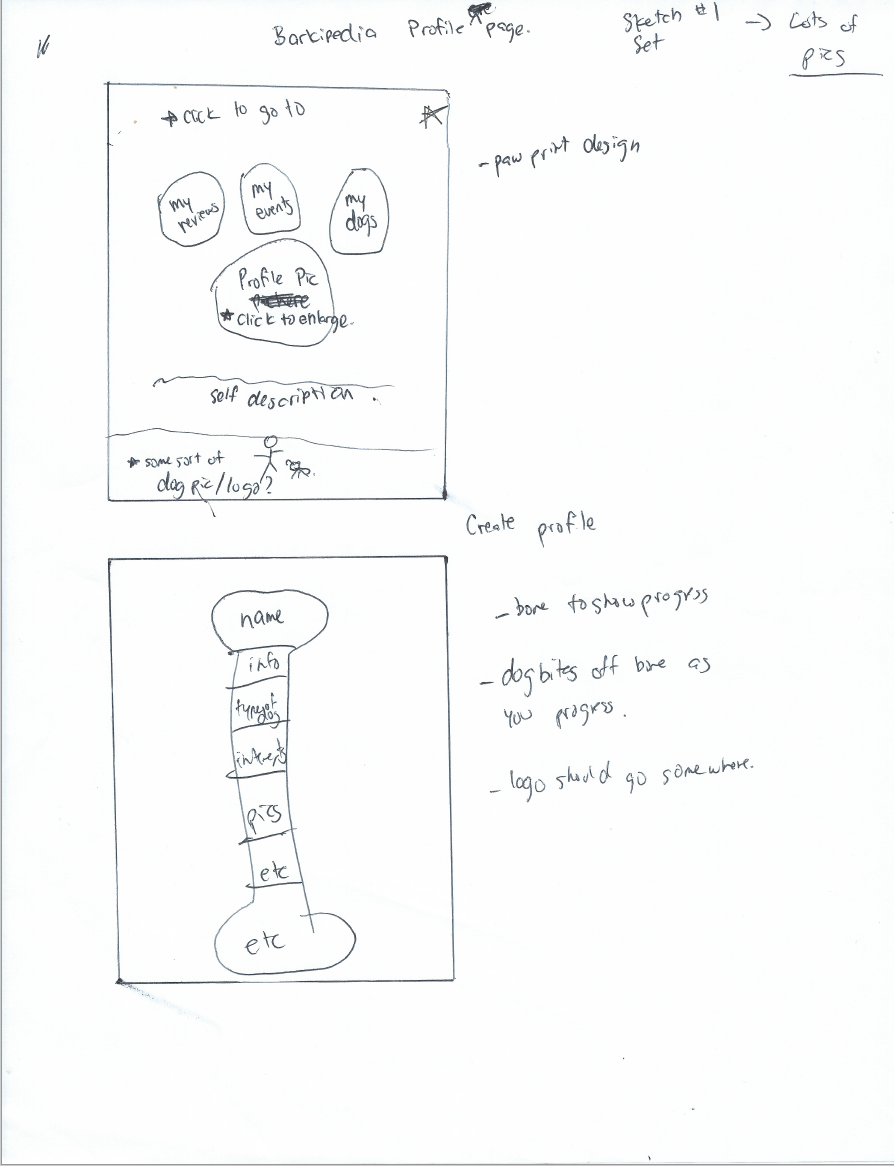 Barkipedia Profile page.
Sketch #1 → Lots of
Set pics
* click to go to
- paw print design
my
reviews
my
events
my
dogs
Profile Pic
* click to enlarge.
self description.
* some sort of
dog pic/logo?
Create profile
name
info
type of
dog
interests
pics
etc
etc
- bone to show progress
- dog bites off bone as
you progress.
- logo should go somewhere.